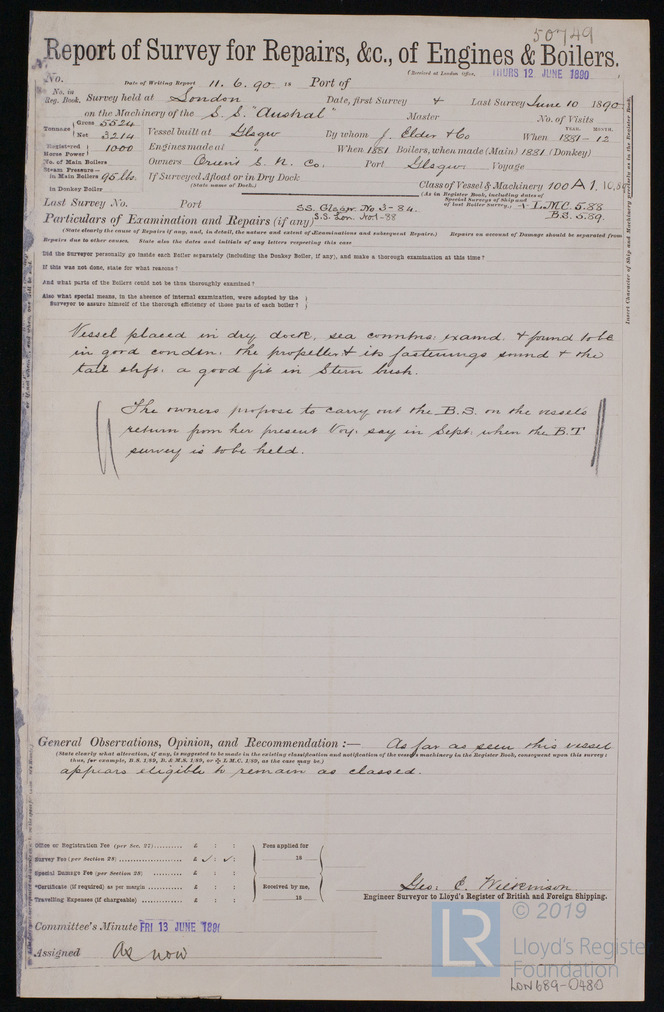 50749
Report of Survey for Repairs, &c., of Engines & Boilers.
(Received at London Office, THURS 12 JUNE 1890
No. Date of Writing Report 11. 6. 90 18 Port of
No. in Reg. Book. Survey held at London Date, first Survey Last Survey June 10 1890
on the Machinery of the S. S. "Austral" Master No. of Visits
Tonnage Gross 5524 Net 3214 Vessel built at Glsgw By whom J. Elder & Co When YEAR. 1881 MONTH. 12
Registered Horse Power 1000 Engines made at " When 1881 Boilers, when made (Main) 1881 (Donkey)
No. of Main Boilers Owners Orient S. N. Co. Port Glsgw Voyage
Steam Pressure— in Main Boilers 95 lbs. If Surveyed Afloat or in Dry Dock
(State name of Dock.)
in Donkey Boiler Class of Vessel & Machinery 100 A 1. 10,89
(As in Register Book, including dates of Special Surveys of Ship and of last Boiler Survey.)
+ L.M.C. 5.88
B.S. 5.89.
Last Survey No. Port SS. Glsgw. No. 3-84
S.S. Lon. No1-88
Particulars of Examination and Repairs (if any)
(State clearly the cause of Repairs if any, and, in detail, the nature and extent of Examinations and subsequent Repairs.) Repairs on account of Damage should be separated from
Repairs due to other causes. State also the dates and initials of any letters respecting this case
Did the Surveyor personally go inside each Boiler separately (including the Donkey Boiler, if any), and make a thorough examination at this time?
If this was not done, state for what reasons?
And what parts of the Boilers could not be thus thoroughly examined?
Also what special means, in the absence of internal examination, were adopted by the
Surveyor to assure himself of the thorough efficiency of these parts of each boiler?
Insert Character of Ship and Machinery precisely as in the Register Book.
Vessel placed in dry dock, sea conntns: examd. & found to be
in good condtn: the propeller & its fastenings sound & the
tail shft: a good fit in Stern bush.
The owners propose to carry out the B.S. on the vessels
return from her present Voy: say in Sept: when the B.T
survey is to be held.
General Observations, Opinion, and Recommendation :— As far as seen this vessel
(State clearly what alteration, if any, is suggested to be made in the existing classification and notification of the vessel's machinery in the Register Book, consequent upon this survey:
thus, for example, B.S. 1/89, B. & M.S. 1/89, or L.M.C. 1/89, as the case may be.)
appears eligible to remain as classed.
Office or Registration Fee (per Sec. 27) £ : : Fees applied for
Survey Fee (per Section 28) £ : : 18
Special Damage Fee (per Section 28) £ : :
*Certificate (if required) as per margin £ : : Received by me,
Travelling Expenses (if chargeable) £ : : 18
Geo: E. Wilkinson
Engineer Surveyor to Lloyd's Register of British and Foreign Shipping.
Committee's Minute FRI 13 JUNE 189
Assigned As now
LR
© 2019
Lloyd's Register
Foundation
LON689-0480